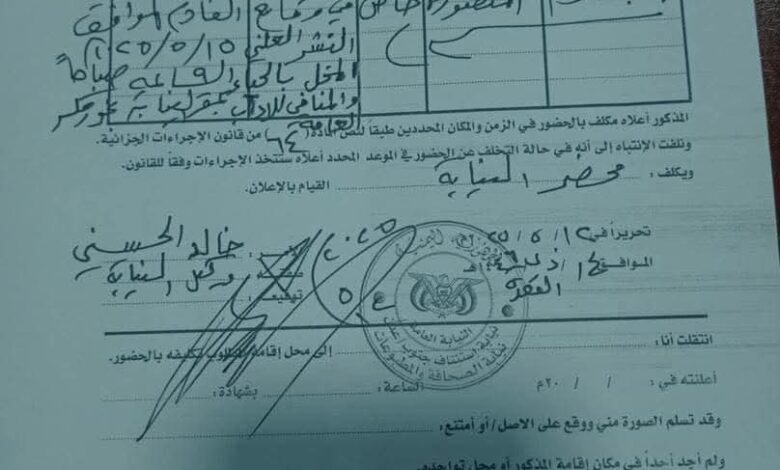 في وقائع القادم الموافق
النشر العلني ٢٠٢٥/٥/١٥
المخل بالحياء الساعة صباحاً
والمنافي للآداب بمقر نيابة خور مكسر
العامة
المذكور أعلاه مكلف بالحضور في الزمن والمكان المحددين طبقاً لنص المادة (٦٤) من قانون الإجراءات الجزائية.
ونلفت الإنتباه إلى أنه في حالة التخلف عن الحضور في الموعد المحدد أعلاه ستتخذ الإجراءات وفقاً للقانون.
ويكلف : محضر النيابة القيام بالإعلان.
تحريراً في ١٢ / ٥ / ٢٠٢٥
خالد الحسني
الموافق ١٤ / ذي القعدة
وكيل النيابة
توقيعه
النيابة العامة
نيابة استئناف جنوب عدن
نيابة الصحافة والمطبوعات
انتقلت أنا : إلى محل إقامة المطلوب تكليفه بالحضور.
أعلنته في : / / ٢٠م الساعة : بشهادة :
وقد تسلم الصورة مني ووقع على الاصل/ أو أمتنع :
ولم أجد أحداً في مكان إقامة المذكور أو محل تواجده